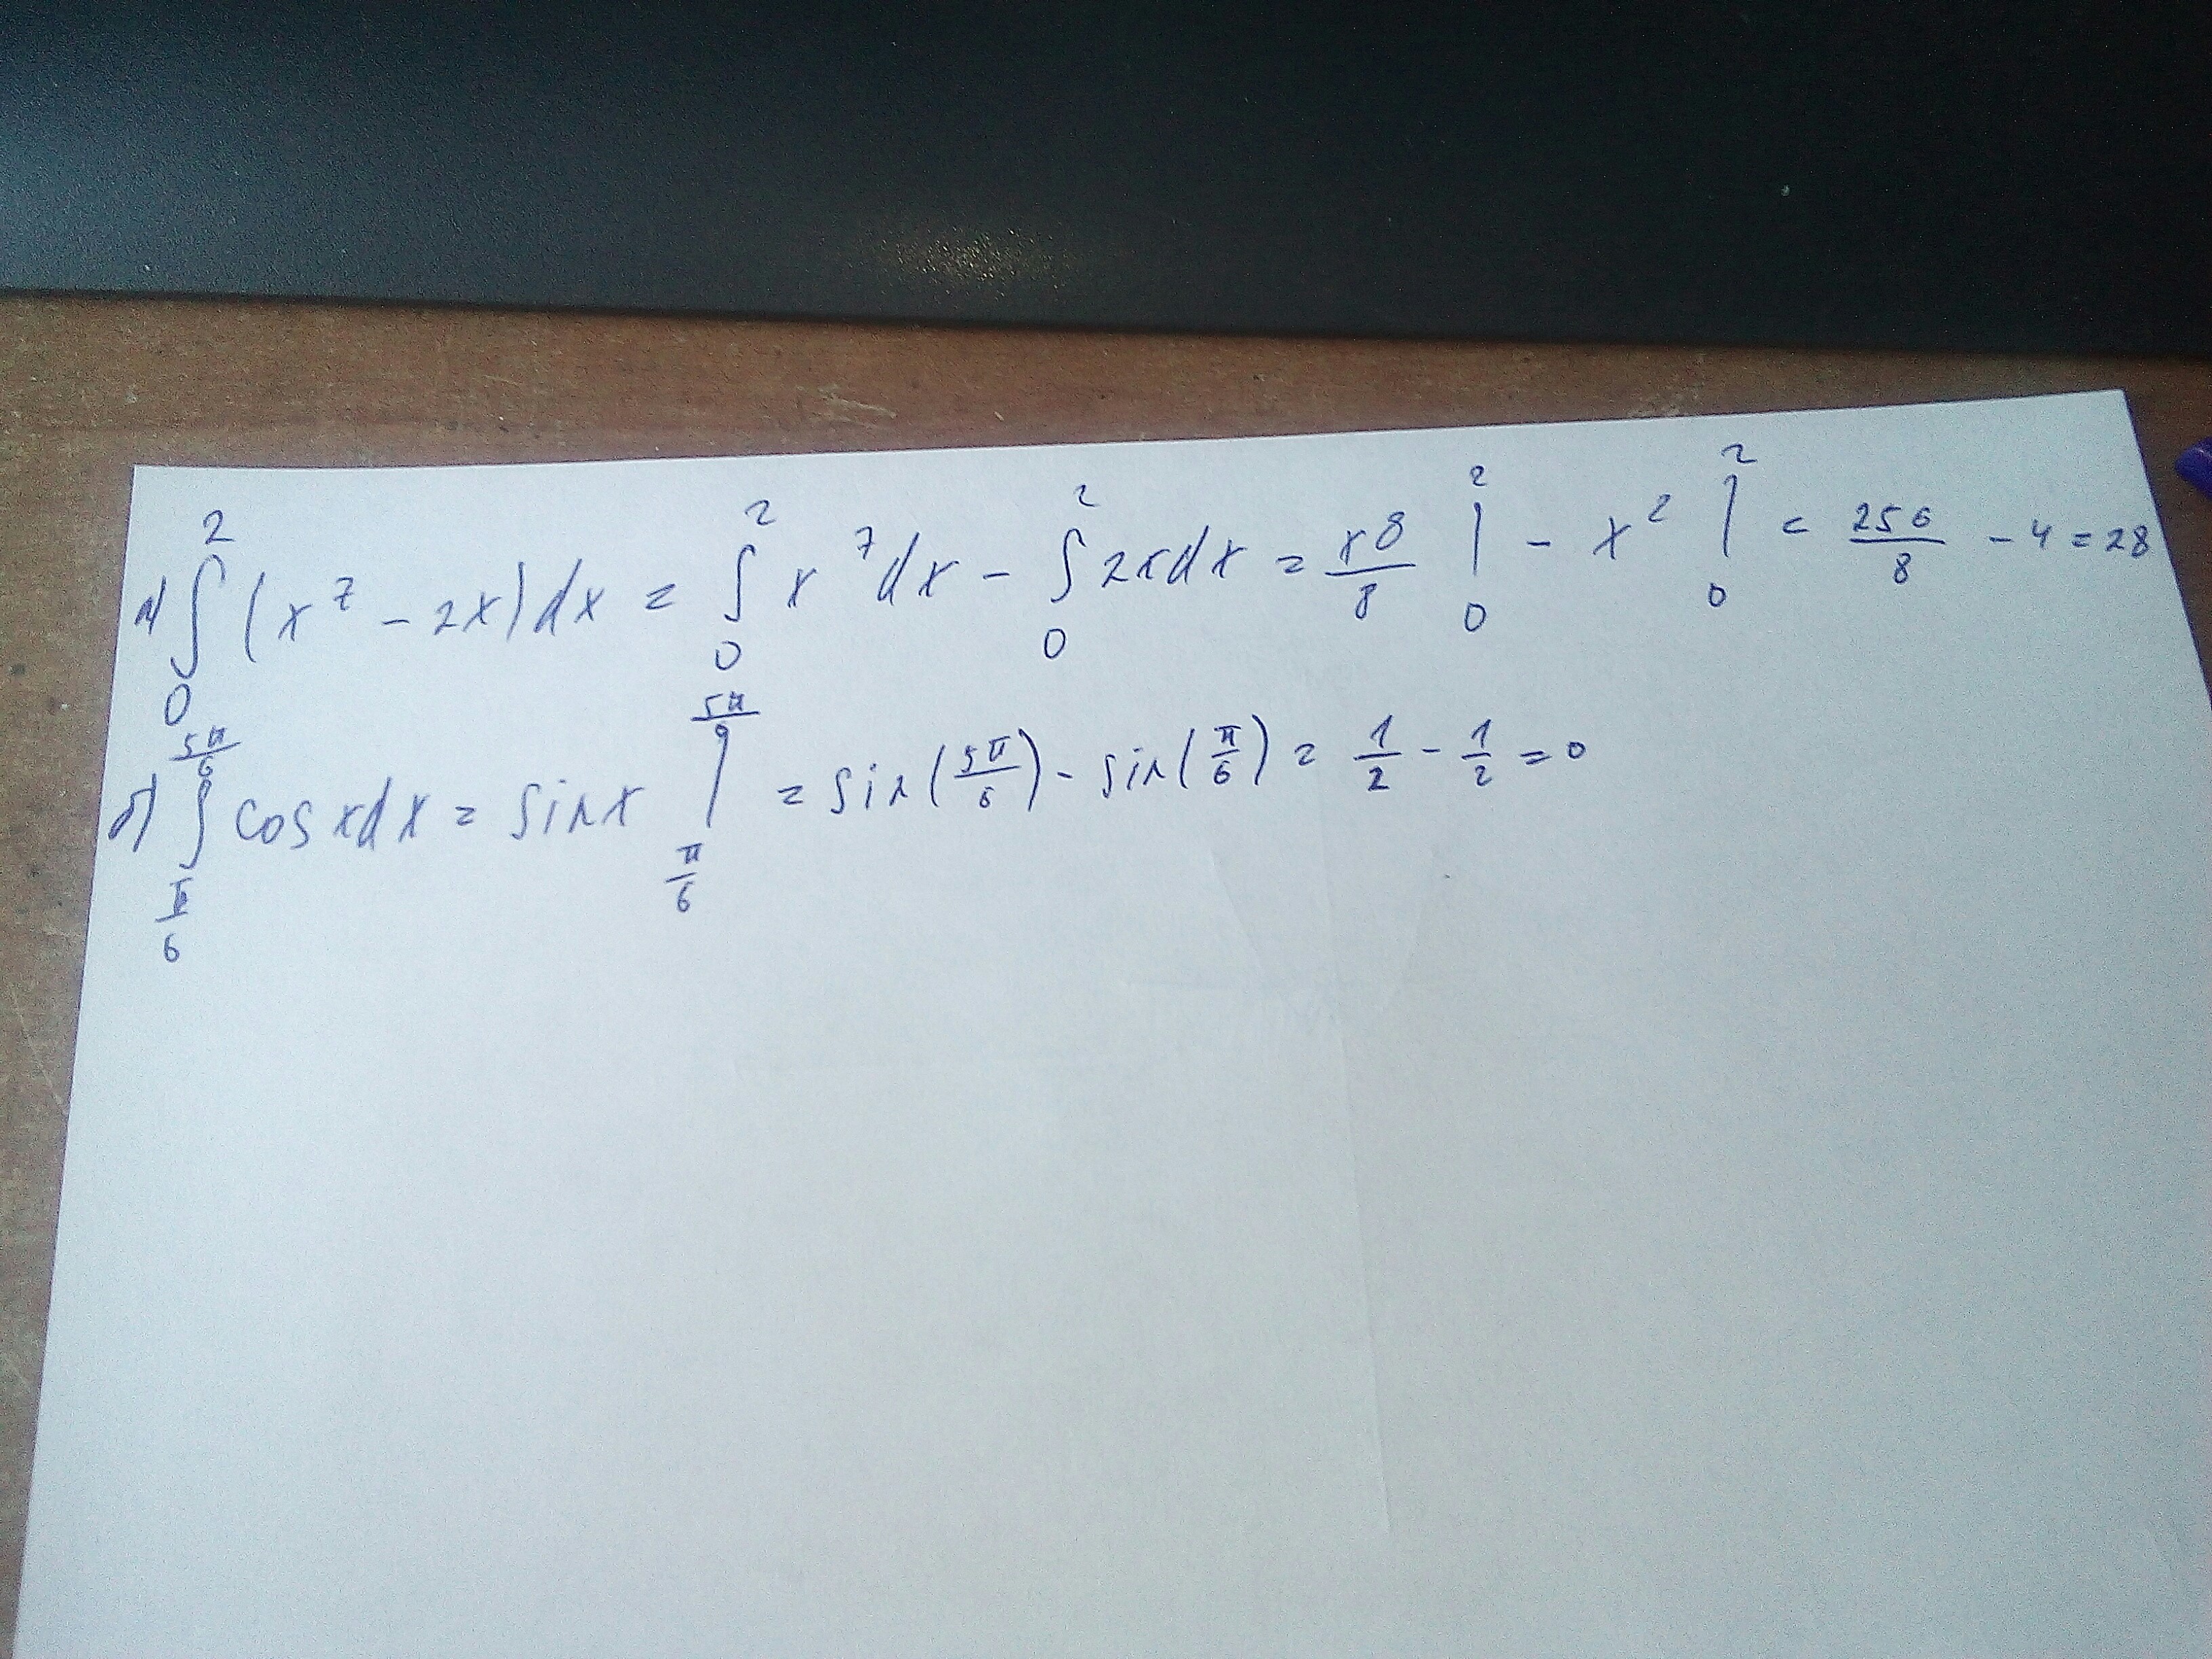 а) ∫₀² (x⁷ - 2x)dx = ∫₀² x⁷dx - ∫₀² 2xdx = x8/8 |₀² - x² |₀² = 256/8 - 4 = 28
б) ∫_{π/6}^{5π/6} cosxdx = sinx |_{π/6}^{5π/6} = sin(5π/6) - sin(π/6) = 1/2 - 1/2 = 0